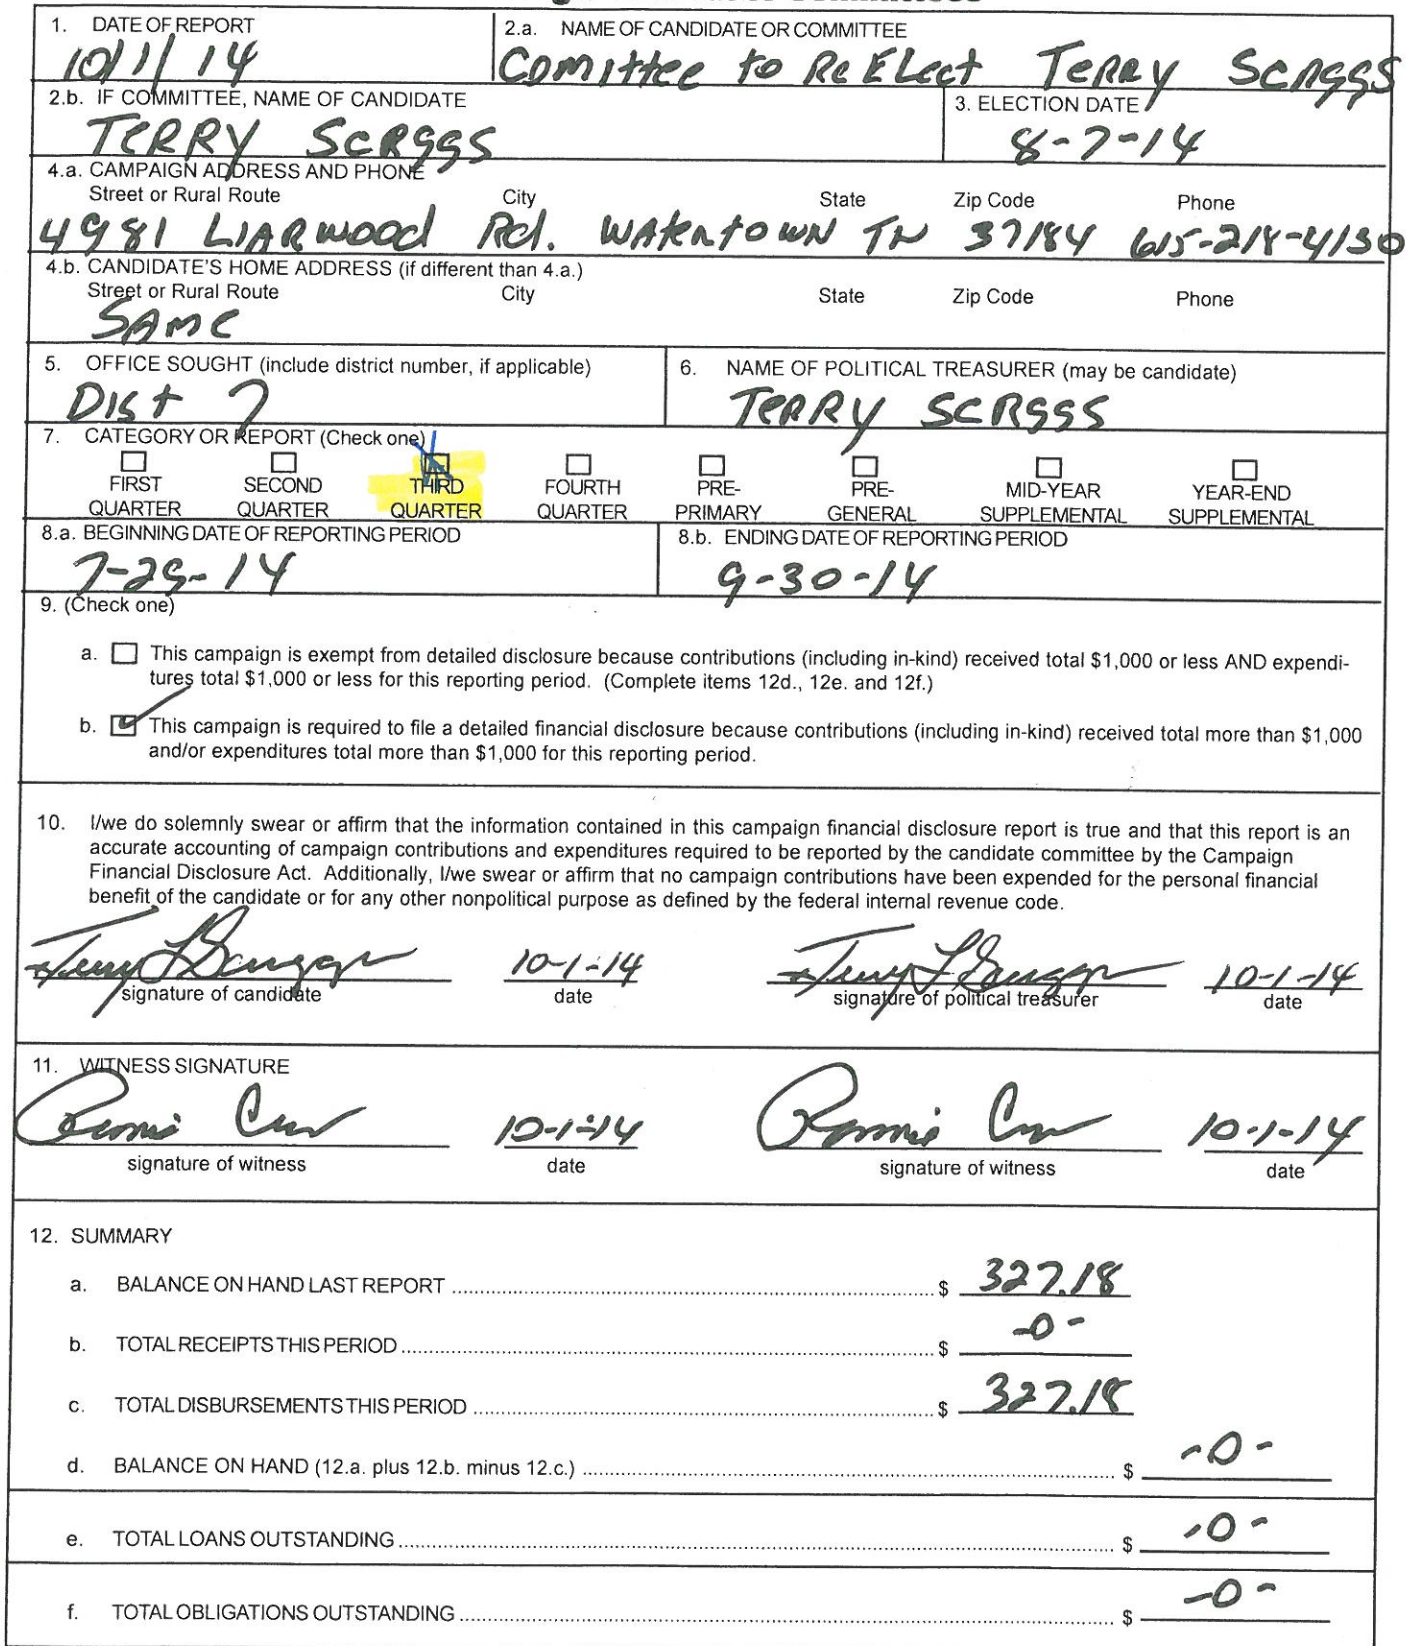 1. DATE OF REPORT
10/1/14
2.a. NAME OF CANDIDATE OR COMMITTEE
Comittee to ReElect Terry Scrggs
2.b. IF COMMITTEE, NAME OF CANDIDATE
Terry Scrggs
3. ELECTION DATE
8-7-14
4.a. CAMPAIGN ADDRESS AND PHONE
Street or Rural Route City State Zip Code Phone
4981 Rd. Watertown TN 37184 615-218-4130
4.b. CANDIDATE'S HOME ADDRESS (if different than 4.a.)
Street or Rural Route City State Zip Code Phone
Same
5. OFFICE SOUGHT (include district number, if applicable)
Dist 7
6. NAME OF POLITICAL TREASURER (may be candidate)
Terry Scrggs
7. CATEGORY OR REPORT (Check one)
FIRST QUARTER
SECOND QUARTER
THIRD QUARTER
FOURTH QUARTER
PRE-PRIMARY
PRE-GENERAL
MID-YEAR SUPPLEMENTAL
YEAR-END SUPPLEMENTAL
8.a. BEGINNING DATE OF REPORTING PERIOD
7-29-14
8.b. ENDING DATE OF REPORTING PERIOD
9-30-14
9. (Check one)
a. This campaign is exempt from detailed disclosure because contributions (including in-kind) received total $1,000 or less AND expendi-
tures total $1,000 or less for this reporting period. (Complete items 12d., 12e. and 12f.)
b. This campaign is required to file a detailed financial disclosure because contributions (including in-kind) received total more than $1,000
and/or expenditures total more than $1,000 for this reporting period.
10. I/we do solemnly swear or affirm that the information contained in this campaign financial disclosure report is true and that this report is an
accurate accounting of campaign contributions and expenditures required to be reported by the candidate committee by the Campaign
Financial Disclosure Act. Additionally, I/we swear or affirm that no campaign contributions have been expended for the personal financial
benefit of the candidate or for any other nonpolitical purpose as defined by the federal internal revenue code.
10-1-14 10-1-14
signature of candidate date signature of political treasurer date
11. WITNESS SIGNATURE
10-1-14 10-1-14
signature of witness date signature of witness date
12. SUMMARY
a. BALANCE ON HAND LAST REPORT $ 327.18
b. TOTAL RECEIPTS THIS PERIOD $ -0-
c. TOTAL DISBURSEMENTS THIS PERIOD $ 327.18
d. BALANCE ON HAND (12.a. plus 12.b. minus 12.c.) $ -0-
e. TOTAL LOANS OUTSTANDING $ -0-
f. TOTAL OBLIGATIONS OUTSTANDING $ -0-